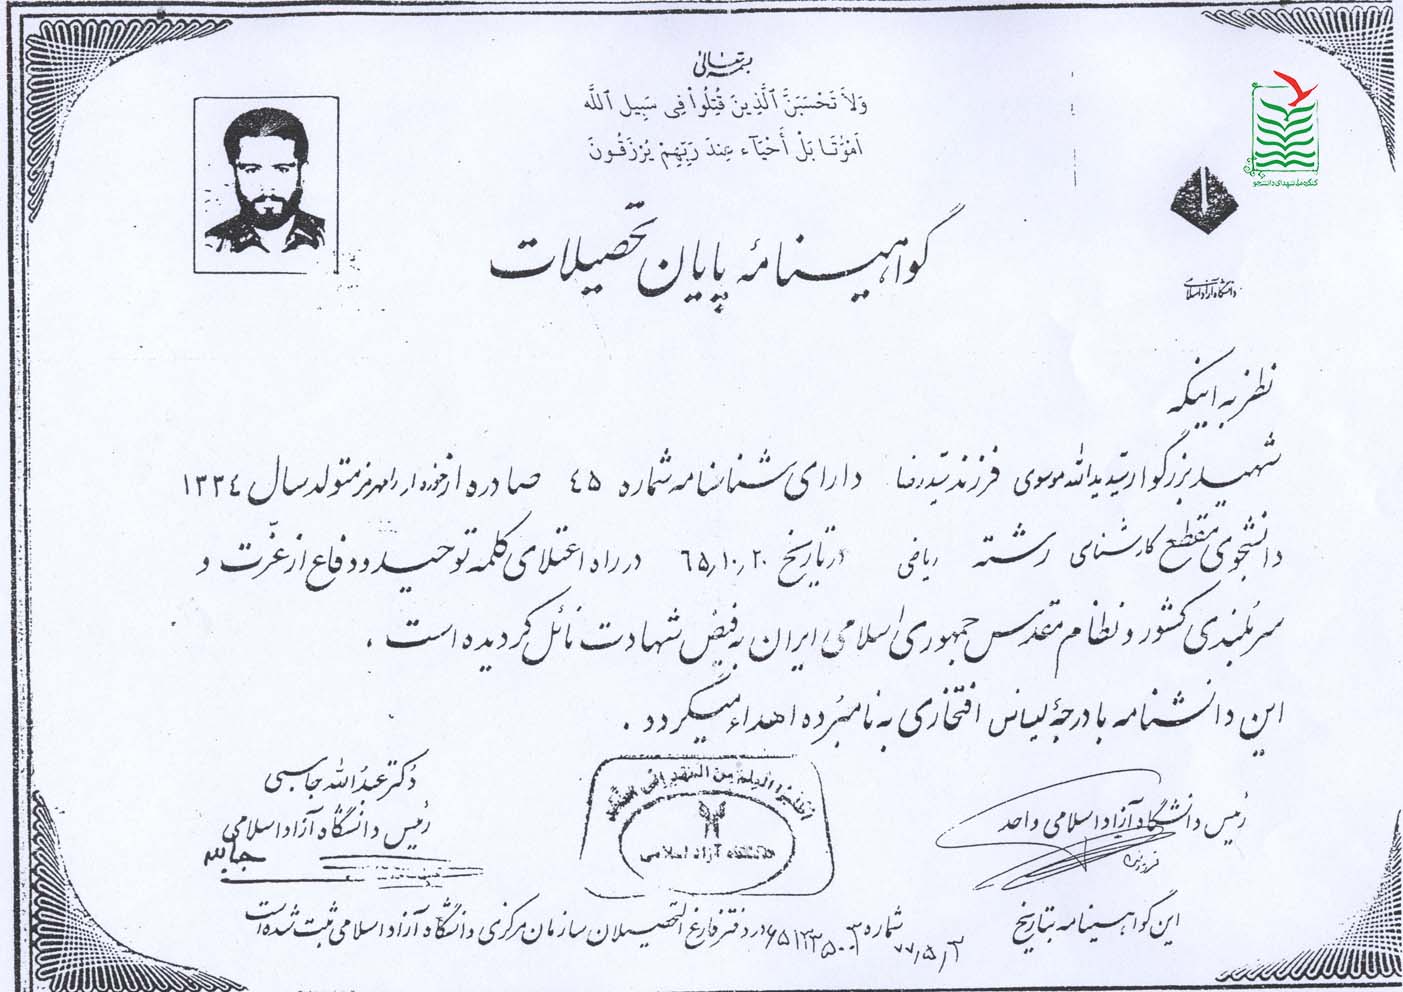 بسمه تعالی
وَلَا تَحْسَبَنَّ ٱلَّذِينَ قُتِلُوا۟ فِى سَبِيلِ ٱللَّه
اَمْوَٰتَا بَلْ أَحْيَآء عِندَ رَبِّهِمْ يُرْزَقُونَ
کنگره ملی شهدای دانشجو
دانشگاه آزاد اسلامی
گواهینامهٔ پایان تحصیلات
نظر به اینکه
شهید بزرگوار سید یدالله موسوی فرزند سید رضا دارای شناسنامه شماره ۴۵ صادره از رامهرمز متولد سال ۱۳۳۴
دانشجوی مقطع کارشناسی رشته ریاضی در تاریخ ۶۵٫۱۰٫۲۰ در راه اعتلای کلمه توحید و دفاع از عزّت و
سربلندی کشور و نظام مقدس جمهوری اسلامی ایران به فیض شهادت نائل گردیده است .
این دانشنامه با درجهٔ لیسانس افتخاری به نامبرده اهداء میگردد .
دکتر عبدالله جاسبی
رئیس دانشگاه آزاد اسلامی
اطلبوا العلم من المهد الی اللحد
دانشگاه آزاد اسلامی
رئیس دانشگاه آزاد اسلامی واحد
این گواهینامه بتاریخ ۷۷٫۵٫۳ شماره در دفتر فارغ التحصیلان سازمان مرکزی دانشگاه آزاد اسلامی ثبت شده است